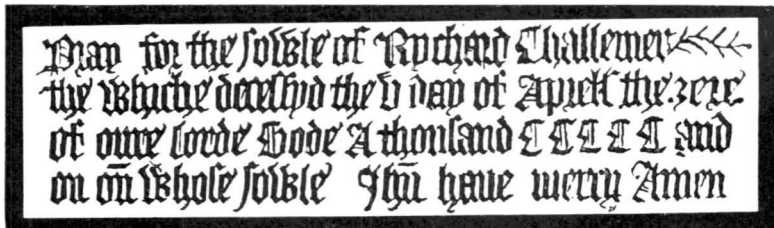 Pray for the sowle of Rychard Challemer
the whiche decesshyd the v day of Apriell the ȝere
of oure Lorde Gode A thousand CCCCC and
on on whose sowle Jhu have mercy Amen